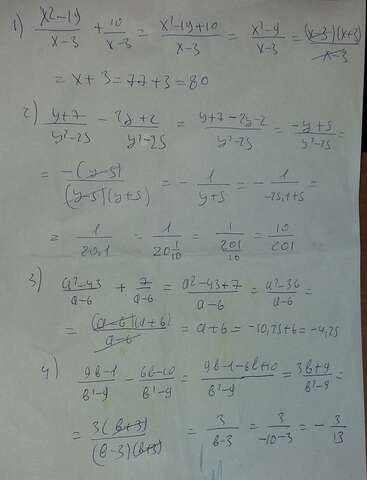 1) x²-19/x-3 + 10/x-3 = x²-19+10/x-3 = x²-9/x-3 = (x-3)(x+3)/x-3
= x+3 = 77+3 = 80
2) y+7/y²-25 - 2y+2/y²-25 = y+7-2y-2/y²-25 = -y+5/y²-25 =
= -(y-5)/(y-5)(y+5) = - 1/y+5 = - 1/-25,1+5 =
= 1/20,1 = 1/20 1/10 = 1/201/10 = 10/201
3) a²-43/a-6 + 7/a-6 = a²-43+7/a-6 = a²-36/a-6 =
= (a-6)(a+6)/a-6 = a+6 = -10,25+6 = -4,25
4) 9b-1/b²-9 - 6b-10/b²-9 = 9b-1-6b+10/b²-9 = 3b+9/b²-9 =
= 3(b+3)/(b-3)(b+3) = 3/b-3 = 3/-10-3 = - 3/13